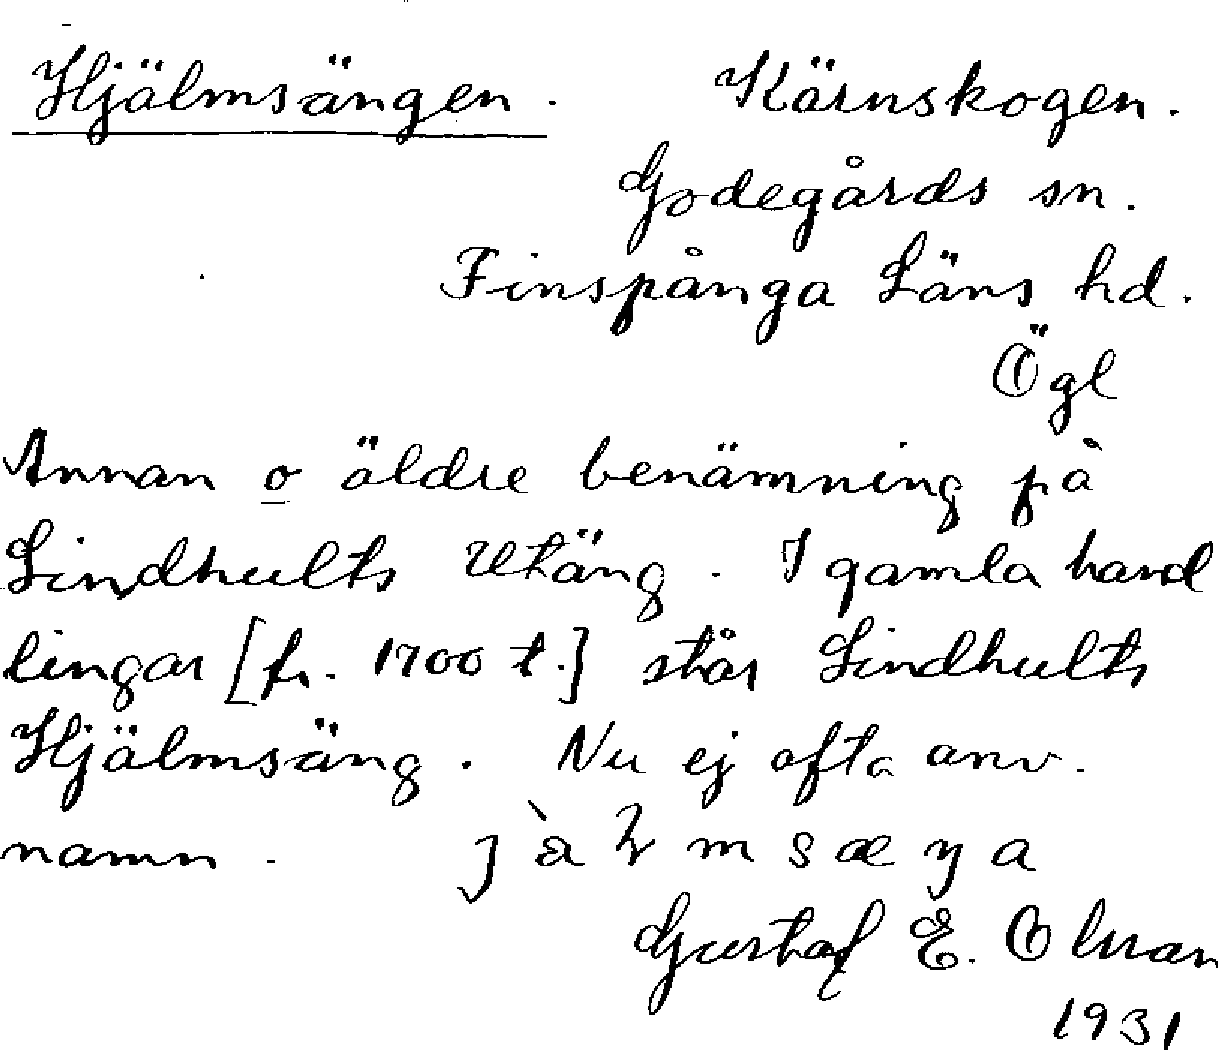 Hjälmsängen. Kärnskogen.
Godegårds sn.
Finspånga Läns hd.
Ögl
Annan o äldre benämning på
Lindhults Utäng. I gamla hand
lingar [fr. 1700 t.] står Lindhults
Hjälmsäng. Nu ej ofta anv.
namn.
Gustaf E.
1931